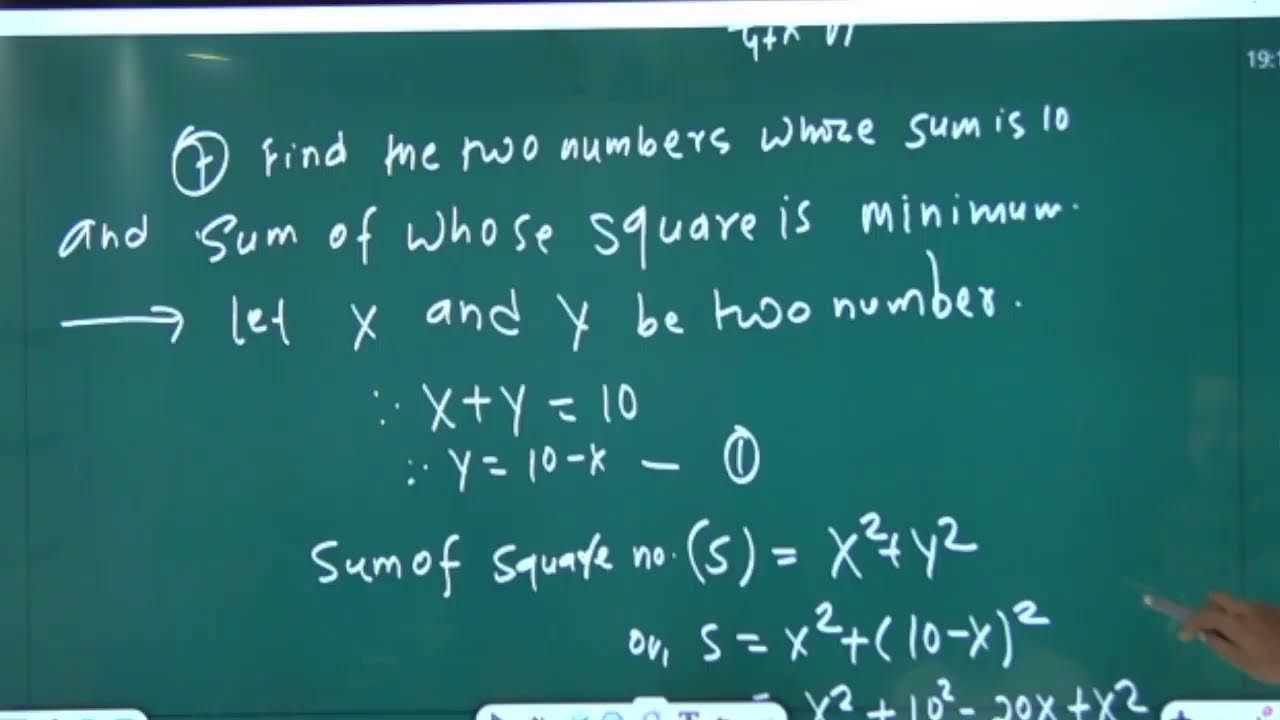 19:1
⑦ Find the two numbers whose sum is 10
and sum of whose square is minimum.
→ let x and y be two number.
∵ x+y = 10
∴ y = 10-x — ①
Sum of square no. (S) = x²+y²
or, S = x²+(10-x)²
= x² + 10² - 20x + x²